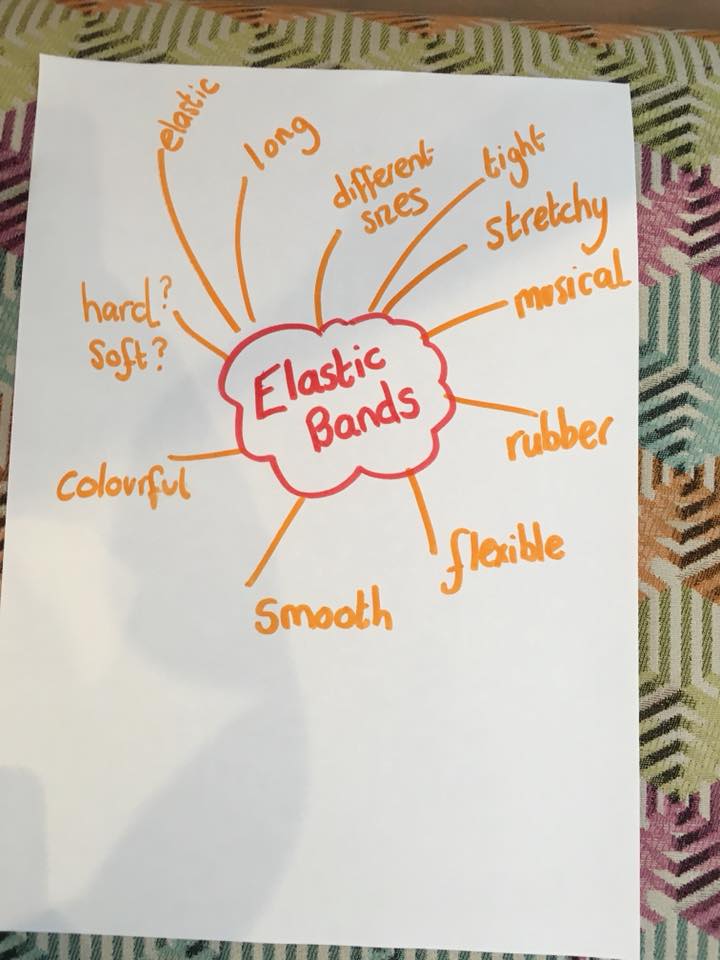 elastic
long
different
sizes
tight
stretchy
musical
hard?
soft?
Elastic
Bands
rubber
colourful
flexible
smooth